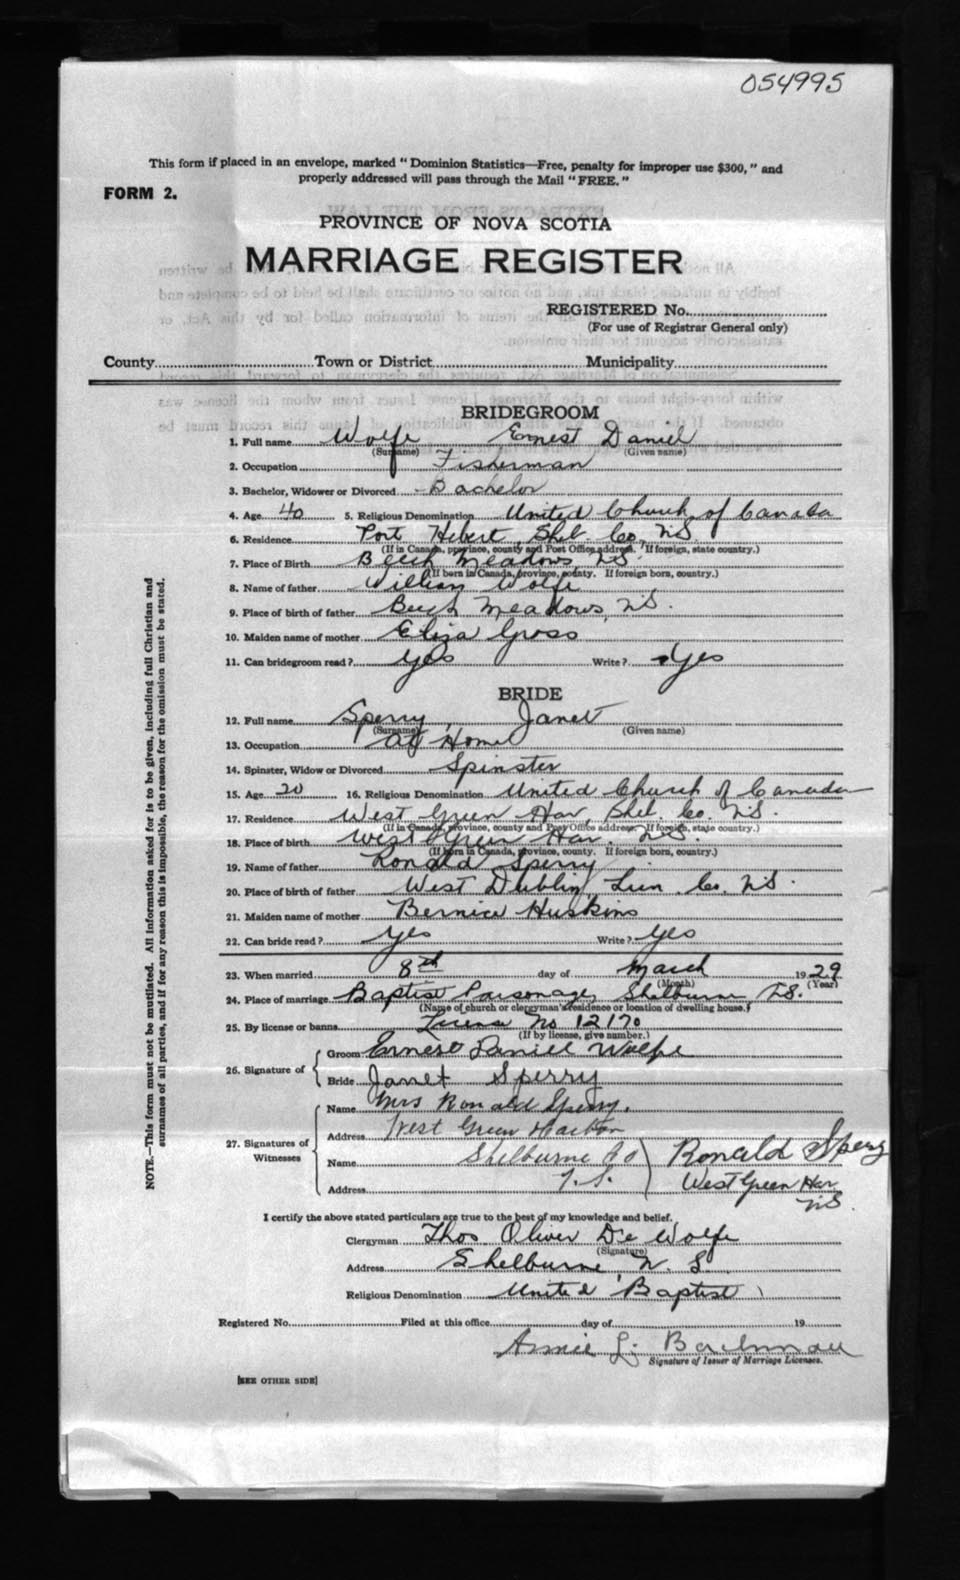 054995
This form if placed in an envelope, marked "Dominion Statistics—Free, penalty for improper use $300," and
properly addressed will pass through the Mail "FREE."
FORM 2.
PROVINCE OF NOVA SCOTIA
MARRIAGE REGISTER
REGISTERED No.
(For use of Registrar General only)
County Town or District Municipality
BRIDEGROOM
1. Full name Wolfe Ernest Daniel
(Surname) (Given name)
2. Occupation Fisherman
3. Bachelor, Widower or Divorced Bachelor
4. Age 40 5. Religious Denomination United Church of Canada
6. Residence Port Hebert, Shel. Co, N.S.
(If in Canada, province, county and Post Office address. If foreign, state country.)
7. Place of Birth Beech Meadows, N.S.
(If born in Canada, province, county. If foreign born, country.)
8. Name of father William Wolfe
9. Place of birth of father Beech Meadows, N.S.
10. Maiden name of mother Eliza Gross
11. Can bridegroom read? yes Write? Yes
BRIDE
12. Full name Sperry, Janet
(Surname) (Given name)
13. Occupation at Home
14. Spinster, Widow or Divorced Spinster
15. Age 20 16. Religious Denomination United Church of Canada
17. Residence West Green Har, Shel. Co. N.S.
(If in Canada, province, county and Post Office address. If foreign, state country.)
18. Place of birth West Green Har. N.S.
(If born in Canada, province, county. If foreign born, country.)
19. Name of father Ronald Sperry
20. Place of birth of father West Dublin, Lun. Co. N.S.
21. Maiden name of mother Bernice Huskins
22. Can bride read? yes Write? yes
23. When married 8th day of March 1929
(Month) (Year)
24. Place of marriage Baptist Parsonage, Shelburne, N.S.
(Name of church or clergyman's residence or location of dwelling house.)
25. By license or banns License No 12170
(If by license, give number.)
26. Signature of
Groom Ernest Daniel Wolfe
Bride Janet Sperry
27. Signatures of Witnesses
Name Mrs Ronald Sperry.
Address West Green Harbor
Name Shelburne Co Ronald Sperry
Address N.S. West Green Har
N.S.
I certify the above stated particulars are true to the best of my knowledge and belief.
Clergyman Thos Oliver DeWolfe
(Signature)
Address Shelburne, N. S.
Religious Denomination United Baptist
Registered No. Filed at this office day of 19
Annie L.
Signature of Issuer of Marriage Licenses.
[SEE OTHER SIDE]
NOTE.—This form must not be mutilated. All information asked for is to be given, including full Christian and
surnames of all parties, and if for any reason this is impossible, the reason for the omission must be stated.